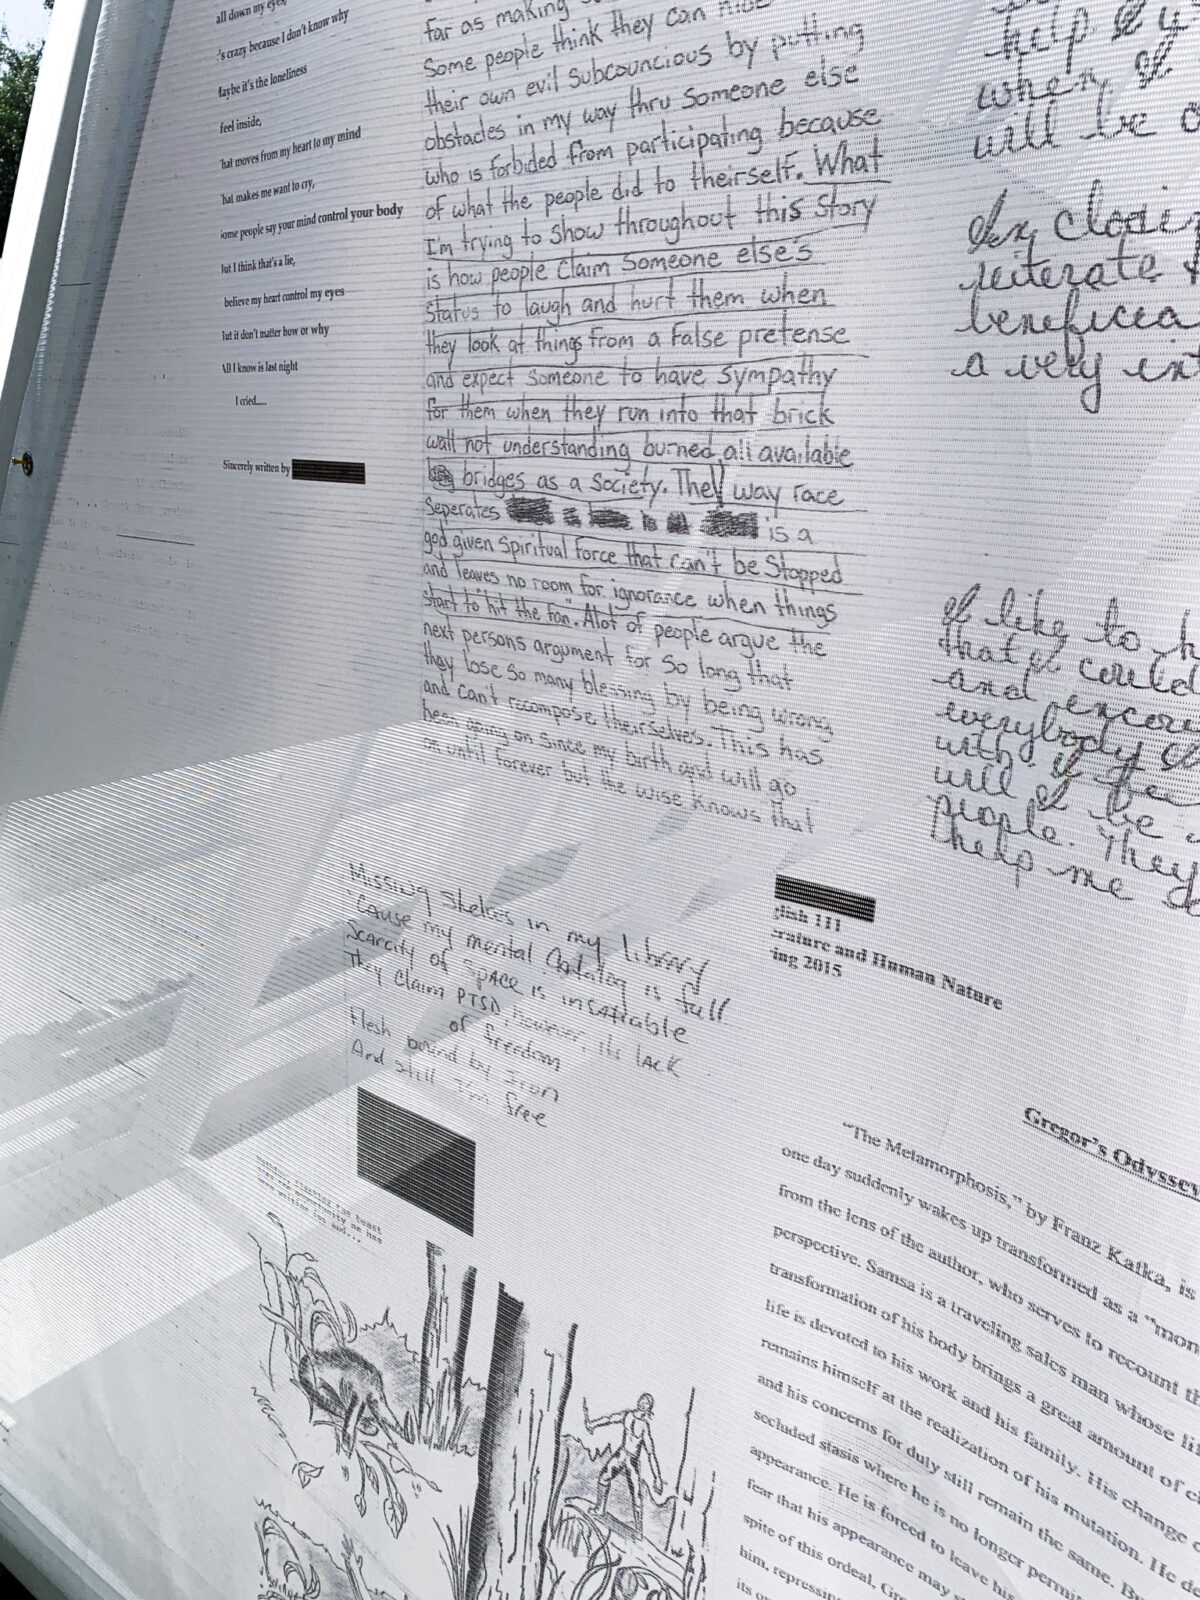 all down my eyes,
's crazy because I don't know why
Maybe it's the loneliness
feel inside,
That moves from my heart to my mind
That makes me want to cry,
some people say your mind control your body
but I think that's a lie,
believe my heart control my eyes
but it don't matter how or why
All I know is last night
I cried.....
Sincerely written by
far as making
Some people think they can hide
their own evil subcouncious by putting
obstacles in my way thru someone else
who is forbided from participating because
of what the people did to theirself. What
I'm trying to show throughout this story
is how people claim someone else's
status to laugh and hurt them when
they look at things from a false pretense
and expect someone to have sympathy
for them when they run into that brick
wall not understanding burned all available
bridges as a society. The way race
seperates is a
god given spiritual force that can't be stopped
and leaves no room for ignorance when things
start to "hit the fan". Alot of people argue the
next persons argument for so long that
they lose so many blessing by being wrong
and can't recompose theirselves. This has
been going on since my birth and will go
on until forever but the wise knows that
help
when I
will be
In closi
reiterate
beneficia
a very int
I like to h
that I could
and encour
everybody
with
will I be
people. They
help me
Missing shelces in my library
'Cause my mental Catalog is full
Scarcity of space is insatiable
They claim PTSD, however, its lack
of freedom
Flesh bound by Iron
And still I'm free
glish 111
erature and Human Nature
ing 2015
Gregor's Odyssey
"The Metamorphosis," by Franz Kafka, is
one day suddenly wakes up transformed as a "mon
from the lens of the author, who serves to recount th
perspective. Samsa is a traveling sales man whose li
transformation of his body brings a great amount of c
life is devoted to his work and his family. His change
remains himself at the realization of his mutation. He de
and his concerns for duty still remain the same. Bu
secluded stasis where he is no longer permi
appearance. He is forced to leave his
fear that his appearance may
spite of this ordeal, Gre
him, repressin
its o